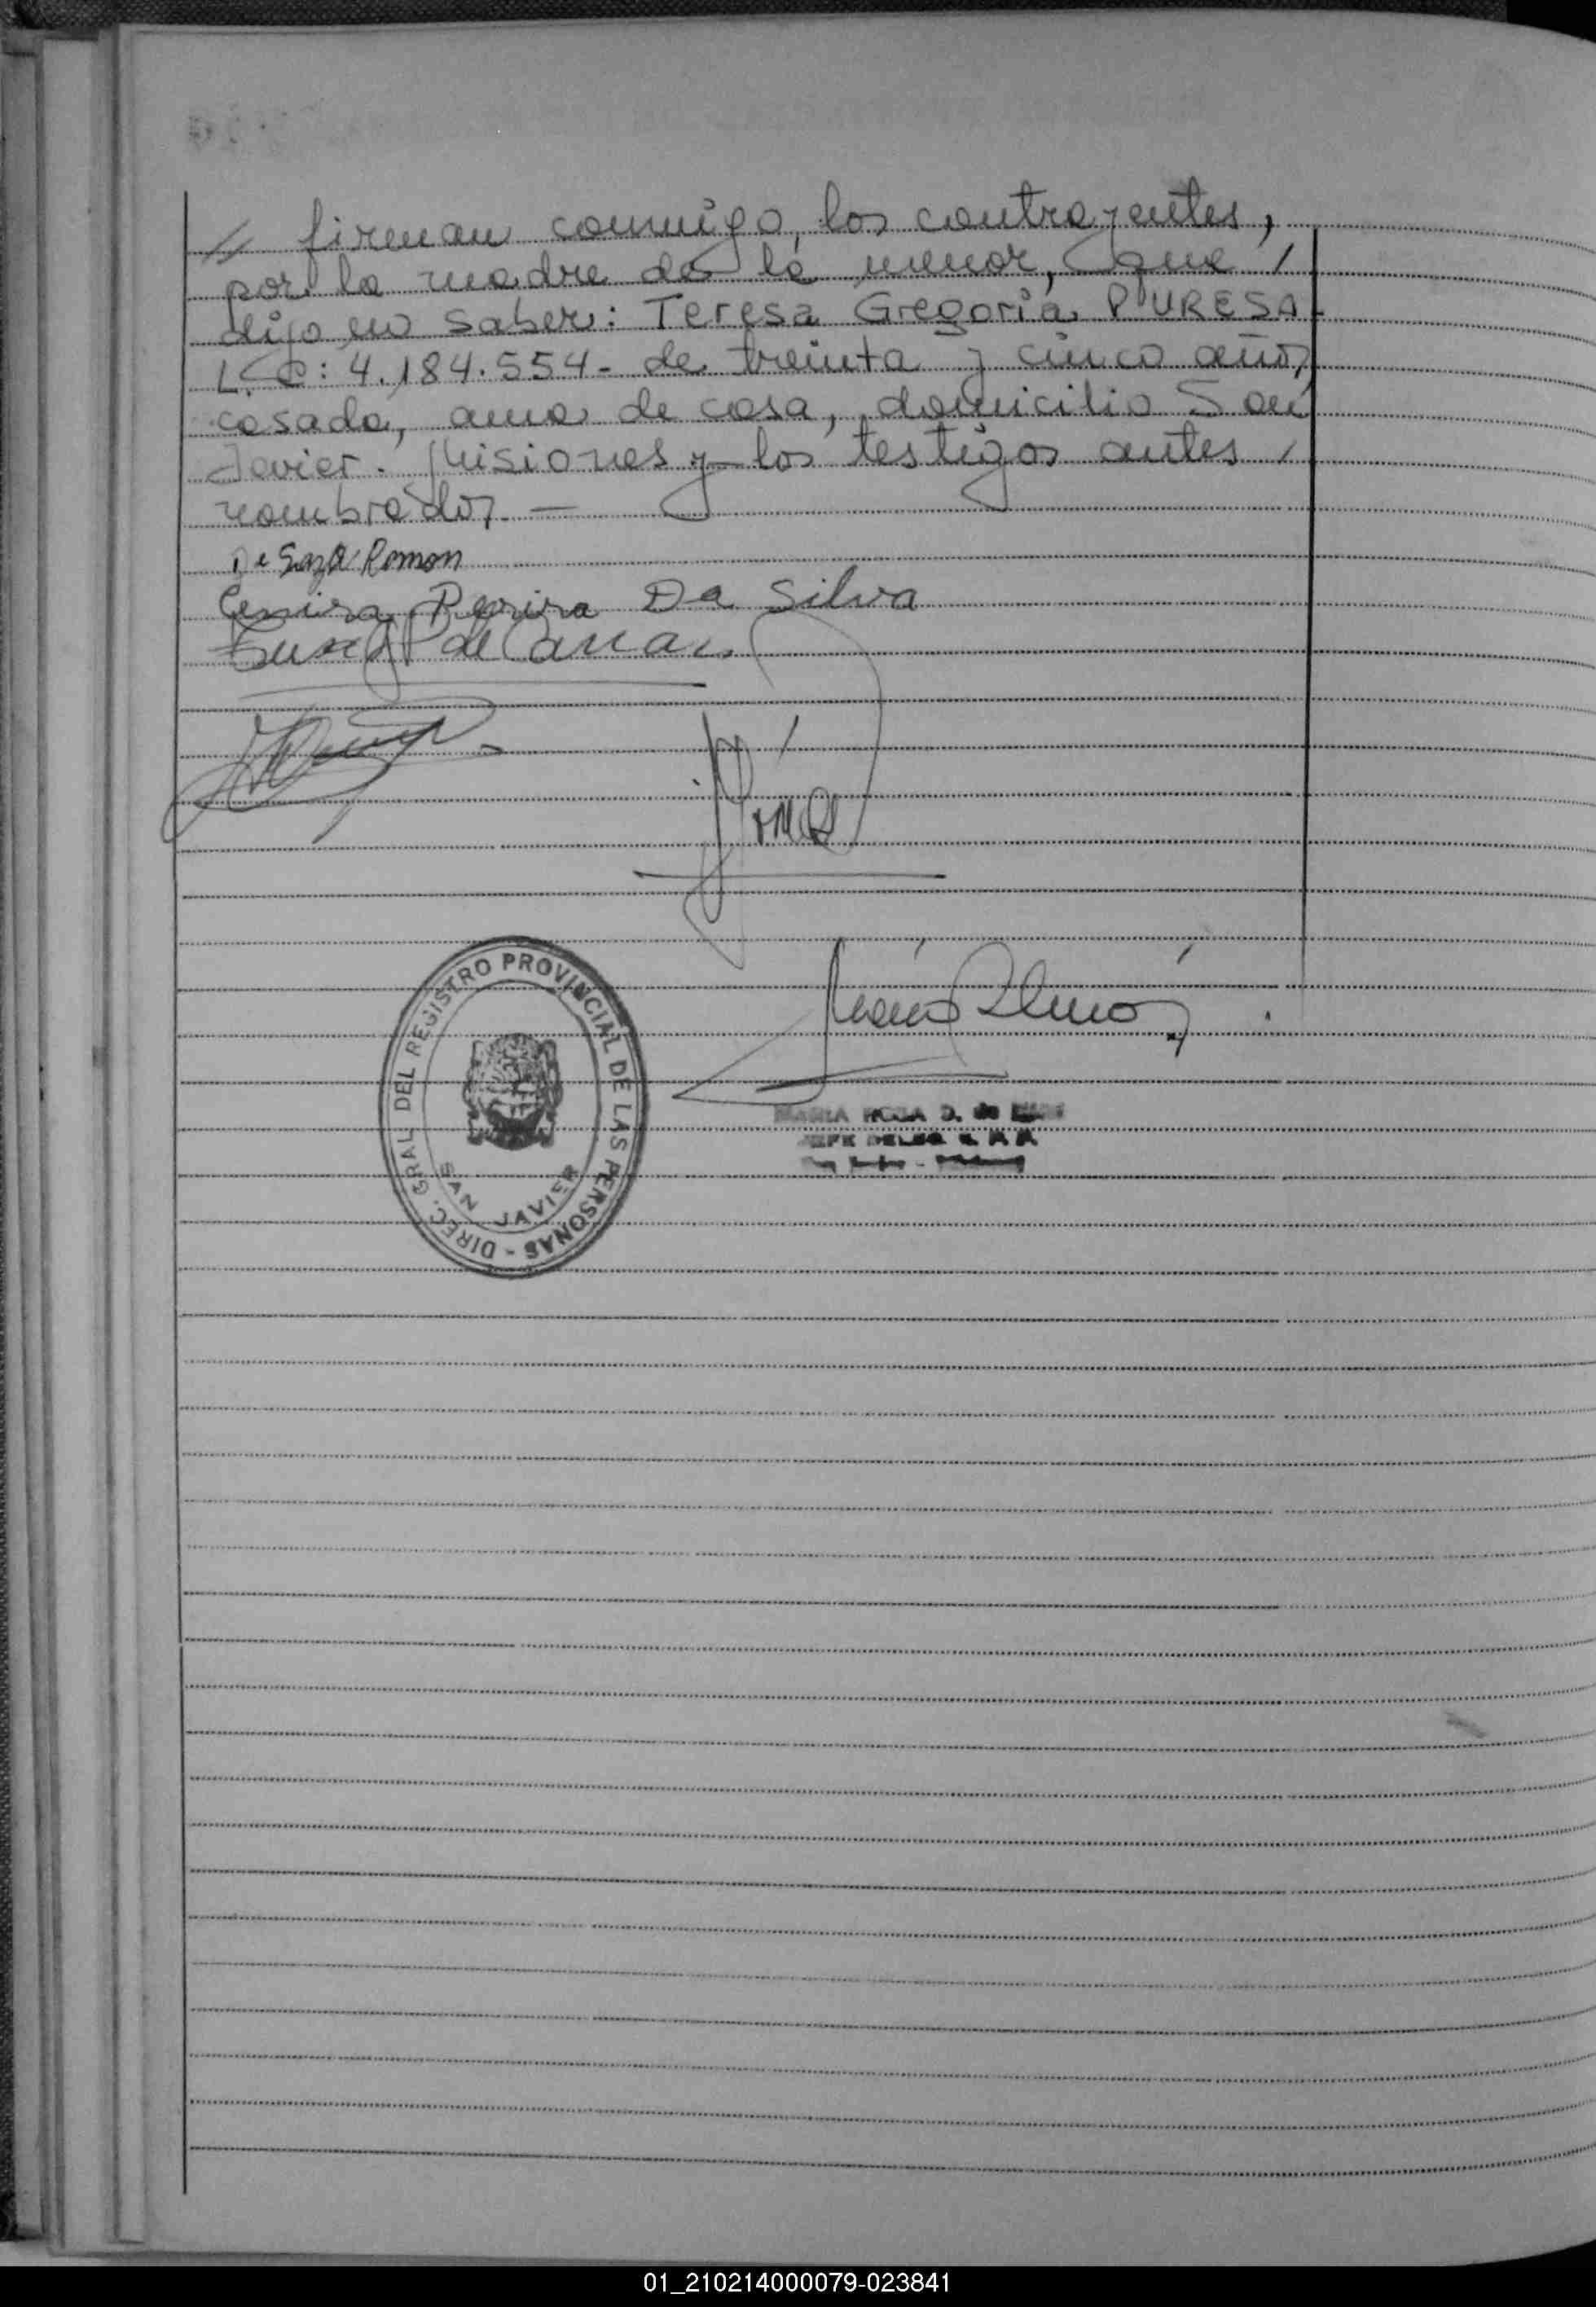 // firman conmigo, los contrayentes,
por la madre de la menor, que /
dijo no saber: Teresa Gregoria PURESA
L.C: 4.184.554- de treinta y cinco años,
casada, ama de casa, domicilio San
Javier. Misiones y los testigos antes /
nombrados. —
De Souza Ramon
Pereira Da Silva
DIREC. GRAL. DEL REGISTRO PROVINCIAL DE LAS PERSONAS -
SAN JAVIER
MARIA ROSA D. de
JEFE DELEG.
01_210214000079-023841